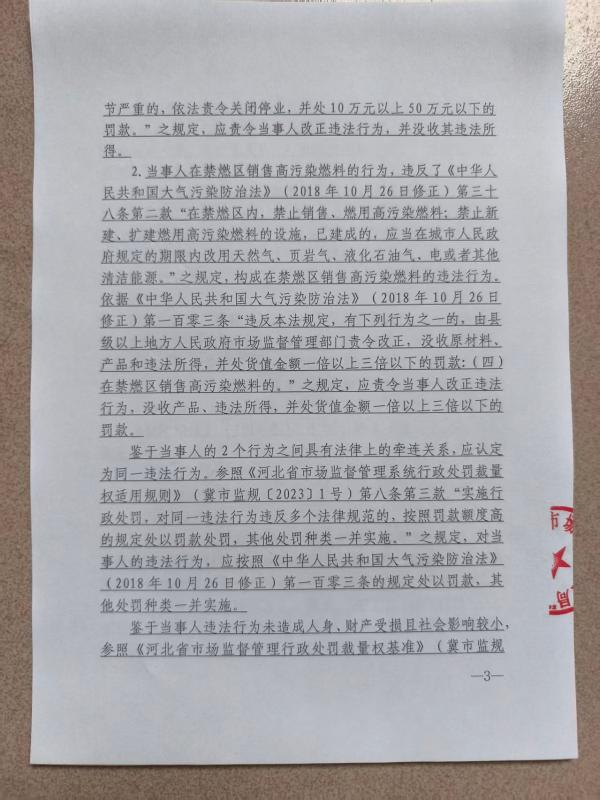 节严重的，依法责令关闭停业，并处10万元以上50万元以下的
罚款。”之规定，应责令当事人改正违法行为，并没收其违法所
得。
2.当事人在禁燃区销售高污染燃料的行为，违反了《中华人
民共和国大气污染防治法》（2018年10月26日修正）第三十
八条第二款“在禁燃区内，禁止销售、燃用高污染燃料；禁止新
建、扩建燃用高污染燃料的设施，已建成的，应当在城市人民政
府规定的期限内改用天然气、页岩气、液化石油气、电或者其他
清洁能源。”之规定，构成在禁燃区销售高污染燃料的违法行为。
依据《中华人民共和国大气污染防治法》（2018年10月26日
修正）第一百零三条“违反本法规定，有下列行为之一的，由县
级以上地方人民政府市场监督管理部门责令改正，没收原材料、
产品和违法所得，并处货值金额一倍以上三倍以下的罚款：（四）
在禁燃区销售高污染燃料的。”之规定，应责令当事人改正违法
行为，没收产品、违法所得，并处货值金额一倍以上三倍以下的
罚款。
鉴于当事人的2个行为之间具有法律上的牵连关系，应认定
为同一违法行为。参照《河北省市场监督管理系统行政处罚裁量
权适用规则》（冀市监规〔2023〕1号）第八条第三款“实施行
政处罚，对同一违法行为违反多个法律规范的，按照罚款额度高
的规定处以罚款处罚，其他处罚种类一并实施。”之规定，对当
事人的违法行为，应按照《中华人民共和国大气污染防治法》
（2018年10月26日修正）第一百零三条的规定处以罚款，其
他处罚种类一并实施。
鉴于当事人违法行为未造成人身、财产受损且社会影响较小，
参照《河北省市场监督管理行政处罚裁量权基准》（冀市监规
—3—